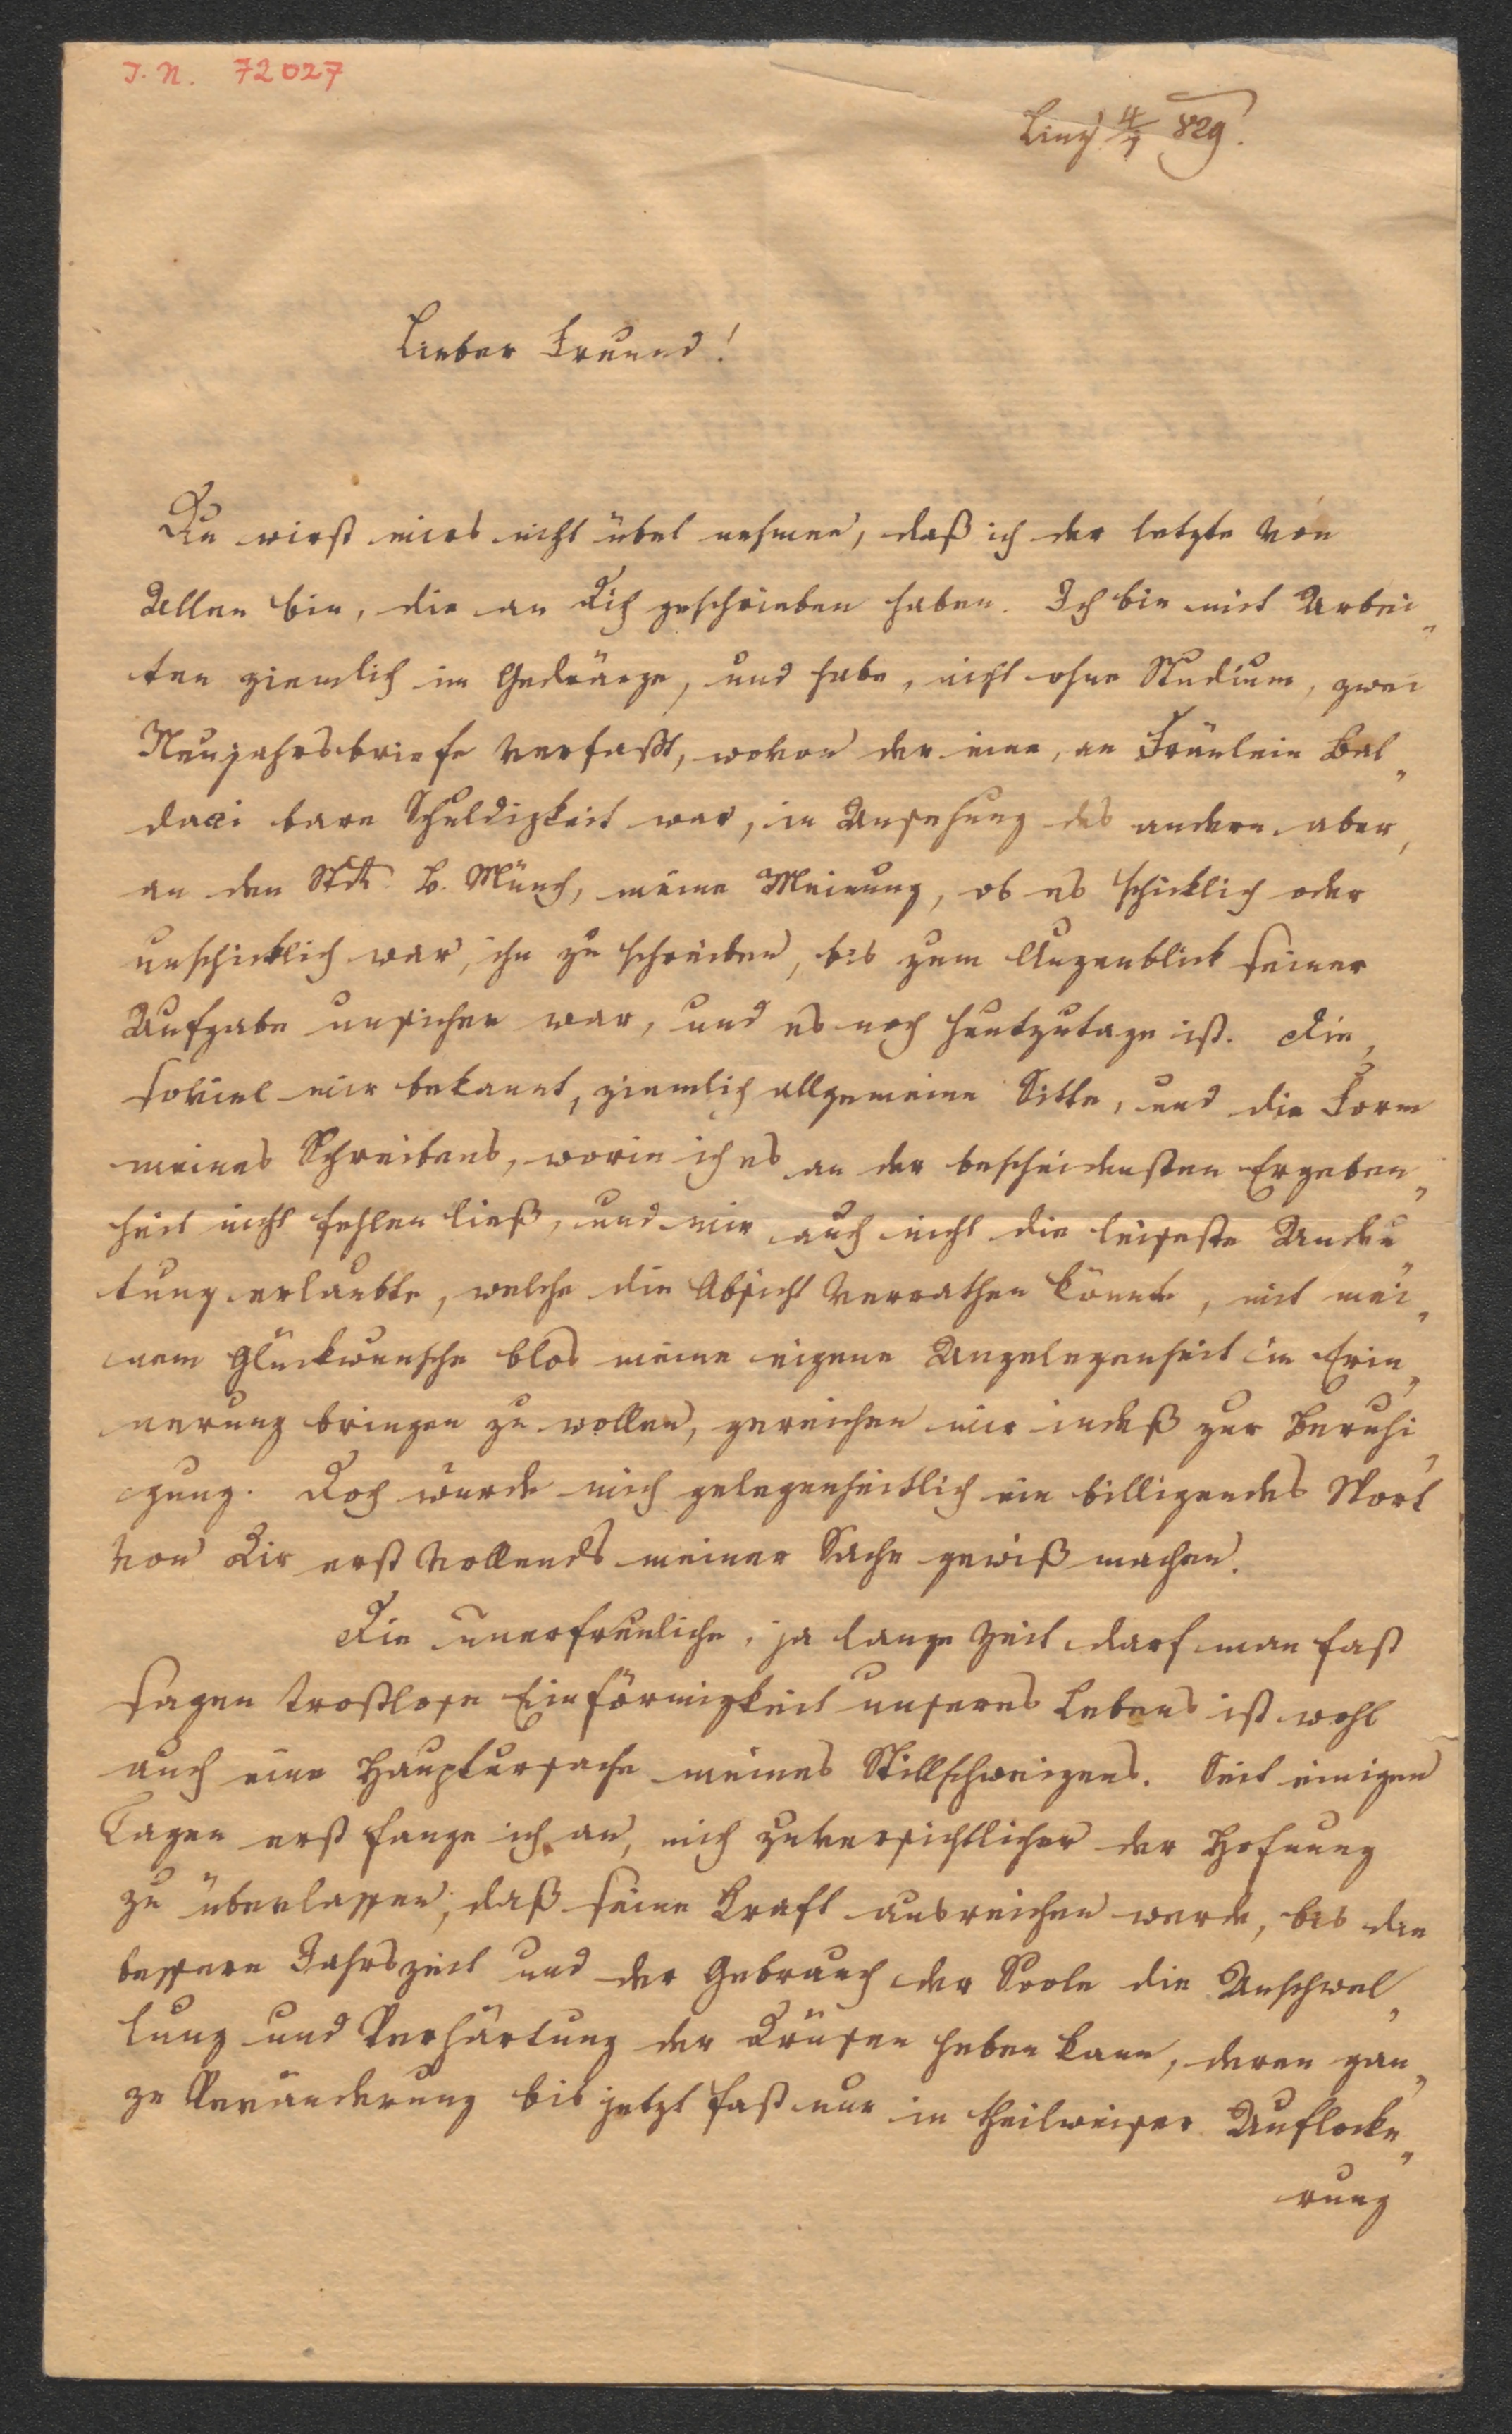 I. N. 72027
Linz 4/1 829.
Lieber Freund!
Du wirst mirs nicht übel nehmen, daß ich der letzte von
Allen bin, die an Dich geschrieben haben. Ich bin mit Arbei„
ten ziemlich im Gedränge, und habe, nicht ohne Studium, zwei
Neujahrsbriefe verfaßt, wovon der eine, an Fräulein Bal„
dacci bare Schuldigkeit war, in Ansehung des andern aber,
an den B. Münch, meine Meinung, ob es schicklich oder
unschicklich war, ihn zu schreiben, bis zum Augenblick seiner
Aufgabe unsicher war, und es noch heutzutage ist. Die,
soviel mir bekannt, ziemlich allgemeine Sitte, und die Form
meines Schreibens, worin ich es an der bescheidensten Ergeben„
heit nicht fehlen ließ, und mir auch nicht die leiseste Andeu„
tung erlaubte, welche die Absicht verrathen könnte, mit mei„
nem Glückwunsche blos meine eigene Angelegenheit in Erin„
nerung bringen zu wollen, gereichen mir indeß zur Beruhi„
gung. Doch würde mich gelegenheitlich ein billigendes Wort
von Dir erst vollends meiner Sache gewiß machen.
Die unerfreuliche, ja lange Zeit darf man fast
sagen trostlose Einförmigkeit unseres Lebens ist wohl
auch eine Hauptursache meines Stillschweigens. Seit einigen
Tagen erst fange ich an, mich zuversichtlicher der Hofnung
zu überlassen, daß seine Kraft ausreichen werde, bis die
bessere Jahrszeit und der Gebrauch der Soole die Anschwel„
lung und Verhärtung der Drüsen heben kann, deren gan„
ze Veränderung bis jetzt fast nur in theilweiser Auflocke„
rung